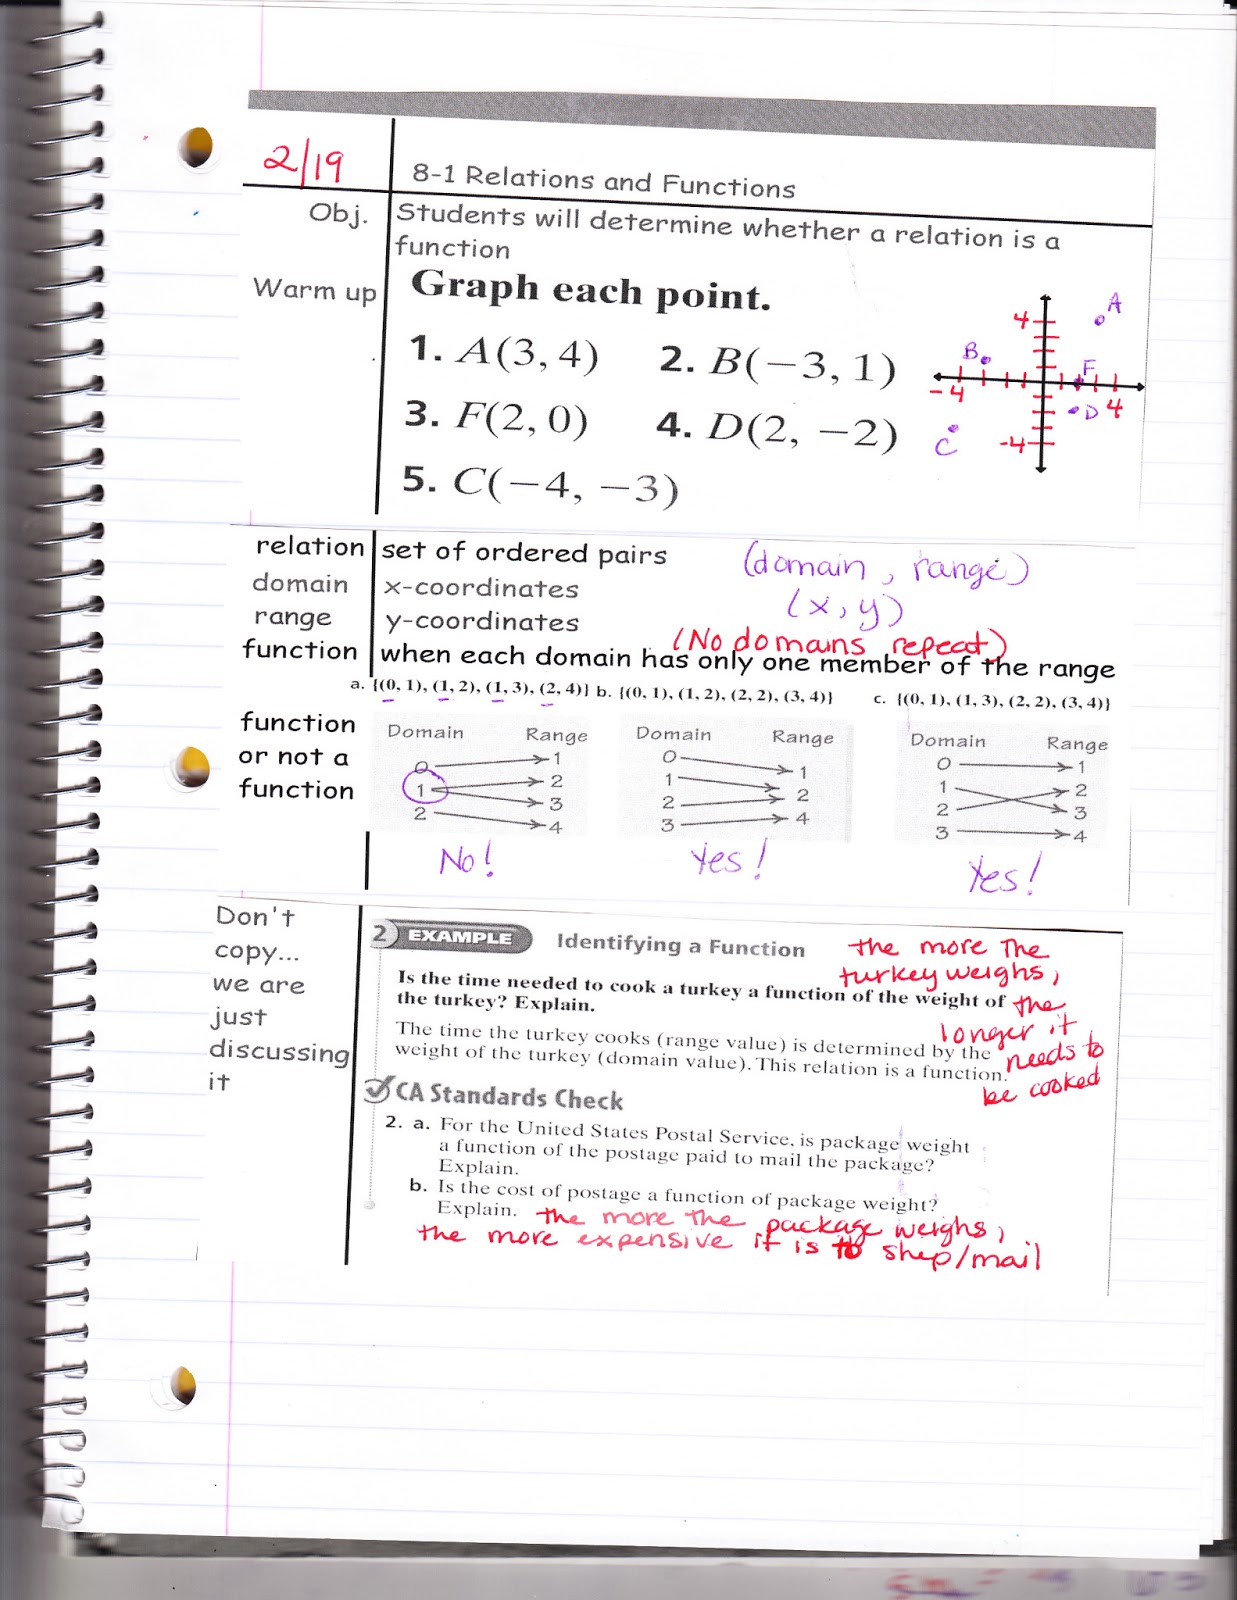 2/19
8-1 Relations and Functions
Obj.
Students will determine whether a relation is a
function
Warm up
Graph each point.
1. A(3, 4) 2. B(−3, 1)
3. F(2, 0) 4. D(2, −2)
5. C(−4, −3)
A
4
B
F
-4
D 4
C
-4
relation set of ordered pairs (domain, range)
domain x-coordinates (x, y)
range y-coordinates
(No domains repeat)
function when each domain has only one member of the range
a. {(0, 1), (1, 2), (1, 3), (2, 4)} b. {(0, 1), (1, 2), (2, 2), (3, 4)} c. {(0, 1), (1, 3), (2, 2), (3, 4)}
function
or not a
function
Domain Range
0 1
1 2
3
2 4
No!
Domain Range
0 1
1 2
2 4
3
Yes!
Domain Range
0 1
1 2
2 3
3 4
Yes!
Don't
copy...
we are
just
discussing
it
2 EXAMPLE Identifying a Function
Is the time needed to cook a turkey a function of the weight of
the turkey? Explain.
The time the turkey cooks (range value) is determined by the
weight of the turkey (domain value). This relation is a function.
the more the
turkey weighs,
the
longer it
needs to
be cooked
CA Standards Check
2. a. For the United States Postal Service, is package weight
a function of the postage paid to mail the package?
Explain.
b. Is the cost of postage a function of package weight?
Explain. the more the package weighs,
the more expensive it is to ship/mail